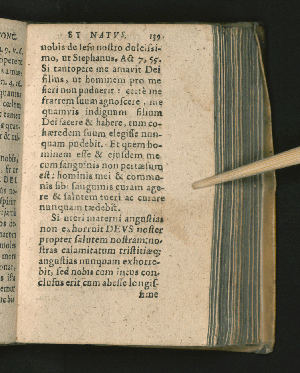 ET NATVS. 139
nobis de Iesu nostro dulcissi-
mo, ut Stephanus, Act 7, 55.
Si tantopere me amavit Dei
filius, ut hominem pro me
fieri non puduerit: certè me
fratrem suum agnoscere, me
quamvis indignum filium
Dei facere & habere, cum co-
hæredem suum elegisse nun-
quam pudebit. Et quem ho-
minem esse & ejusdem me-
cum sanguinis non pertæsum
est: hominis mei & commu-
nis sibi sanguinis curam age-
re & salutem tueri ac curare
nunquam tædebit.
Si uteri materni angustias
non exhorruit DEVS noster
propter salutem nostram: no-
stras calamitatum tristitiæq;
angustias nunquam exhorre-
bit, sed nobiscum
clusus erit cum abesse longis-